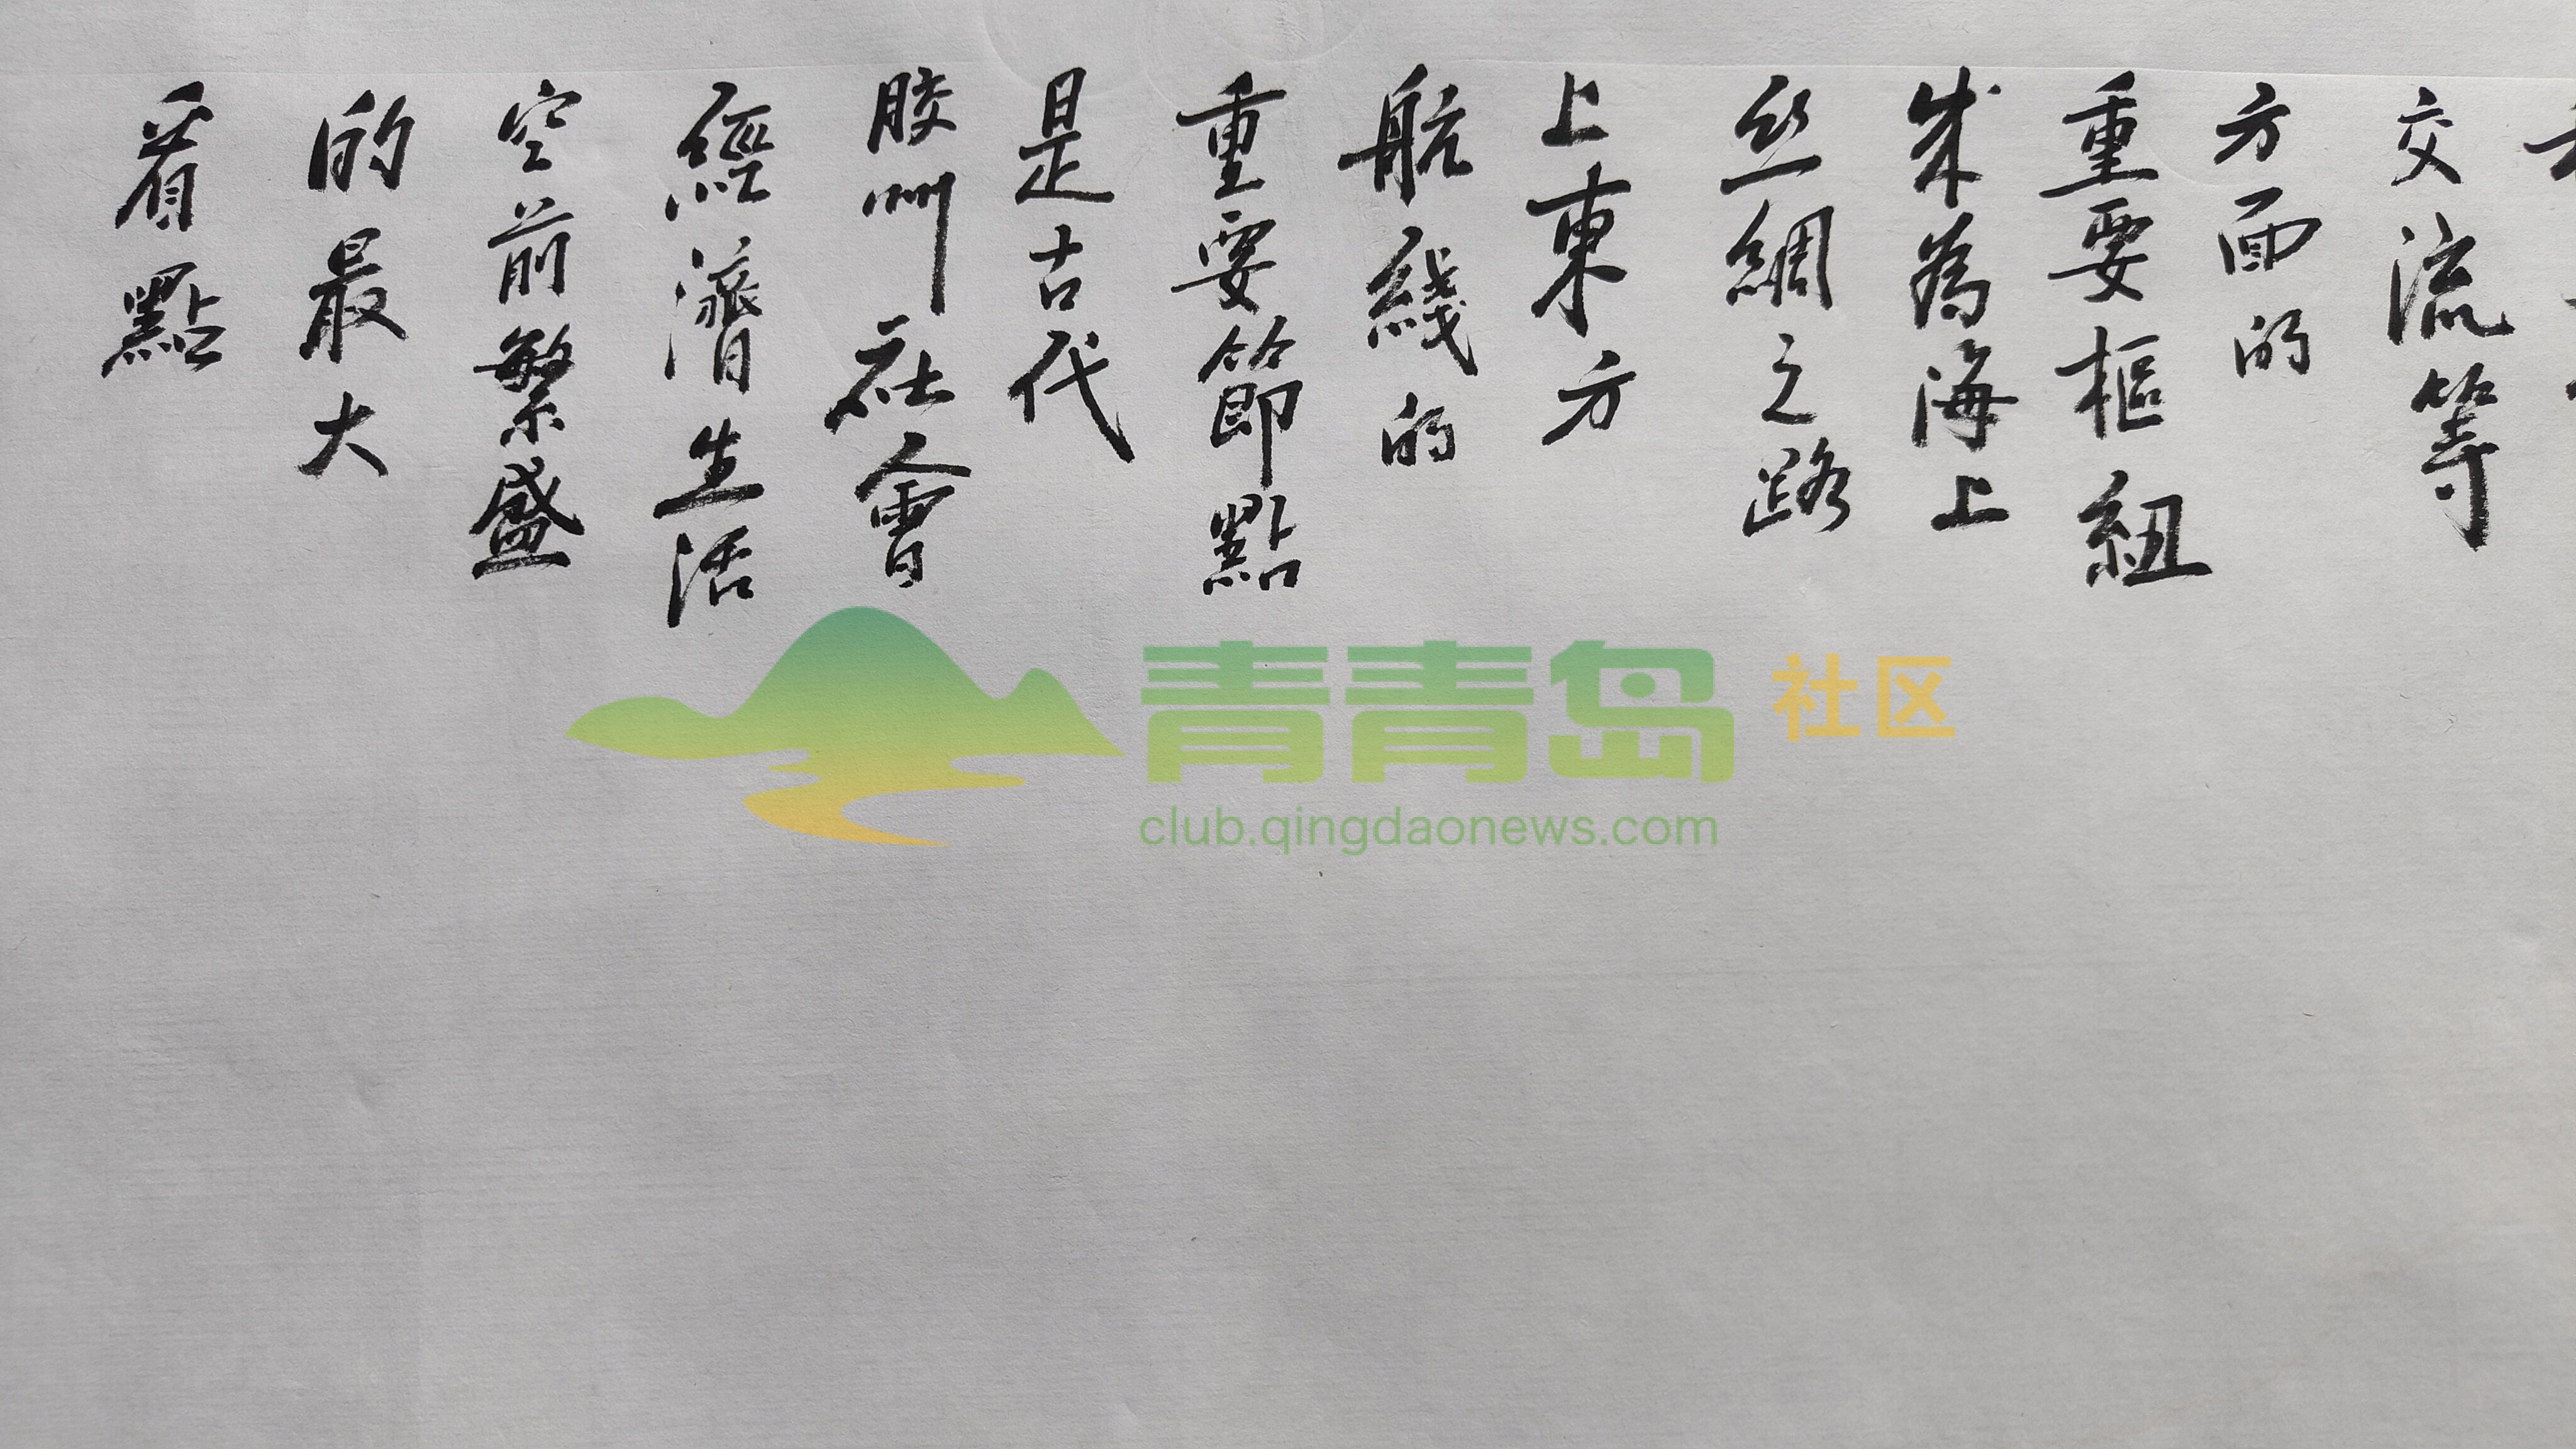 交流等
方面的
重要樞紐
成為海上
丝綢之路
上東方
航綫的
重要節點
是古代
膠州社會
經濟生活
空前繁盛
的最大
看點
青青岛 社区
club.qingdaonews.com